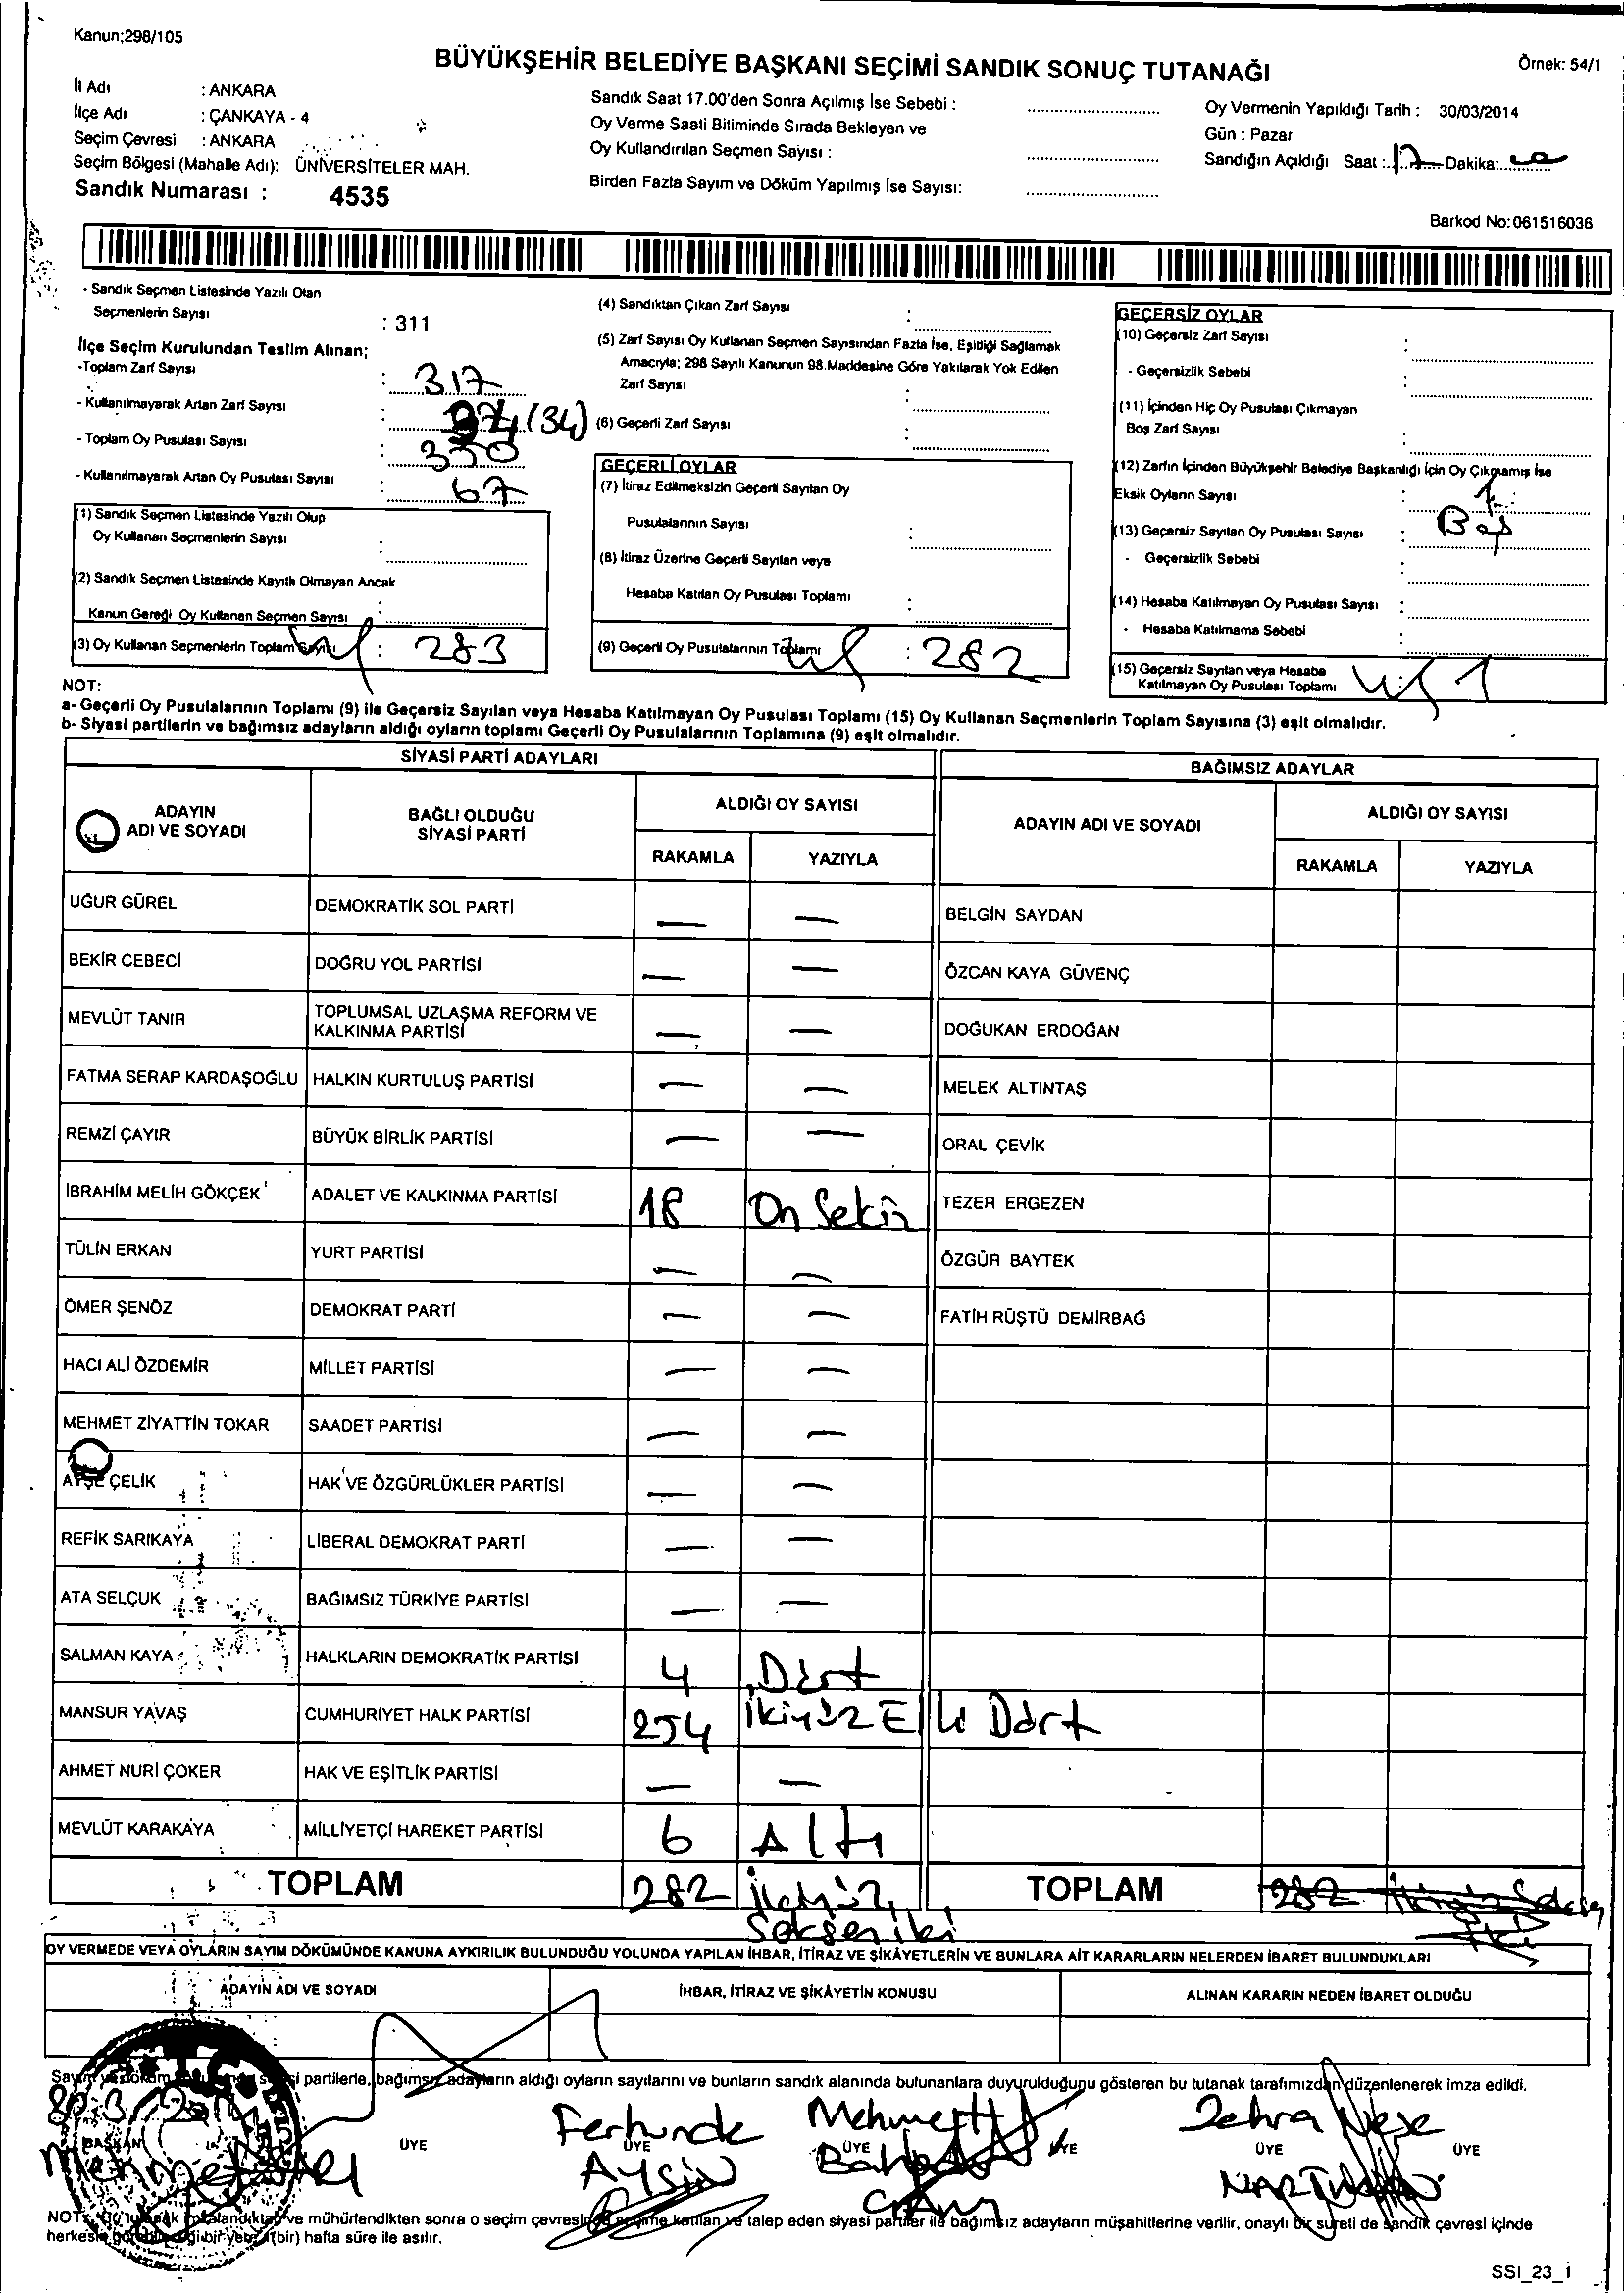 Kanun;298/105
BÜYÜKŞEHİR BELEDİYE BAŞKANI SEÇİMİ SANDIK SONUÇ TUTANAĞI
Örnek: 54/1
İl Adı : ANKARA
İlçe Adı : ÇANKAYA - 4
Seçim Çevresi : ANKARA
Seçim Bölgesi (Mahalle Adı): ÜNİVERSİTELER MAH.
Sandık Numarası : 4535
Sandık Saat 17.00'den Sonra Açılmış İse Sebebi :
Oy Verme Saati Bitiminde Sırada Bekleyen ve
Oy Kullandırılan Seçmen Sayısı :
Birden Fazla Sayım ve Döküm Yapılmış İse Sayısı:
Oy Vermenin Yapıldığı Tarih : 30/03/2014
Gün : Pazar
Sandığın Açıldığı Saat : 17 Dakika:
Barkod No:061516036
- Sandık Seçmen Listesinde Yazılı Olan
Seçmenlerin Sayısı : 311
İlçe Seçim Kurulundan Teslim Alınan;
-Toplam Zarf Sayısı : 317
- Kullanılmayarak Artan Zarf Sayısı : (34)
- Toplam Oy Pusulası Sayısı : 350
- Kullanılmayarak Artan Oy Pusulası Sayısı : 67
(1) Sandık Seçmen Listesinde Yazılı Olup
Oy Kullanan Seçmenlerin Sayısı :
(2) Sandık Seçmen Listesinde Kayıtlı Olmayan Ancak
Kanun Gereği Oy Kullanan Seçmen Sayısı :
(3) Oy Kullanan Seçmenlerin Toplam Sayısı : 283
(4) Sandıktan Çıkan Zarf Sayısı :
(5) Zarf Sayısı Oy Kullanan Seçmen Sayısından Fazla İse, Eşitliği Sağlamak
Amacıyla; 298 Sayılı Kanunun 98.Maddesine Göre Yakılarak Yok Edilen
Zarf Sayısı :
(6) Geçerli Zarf Sayısı :
GEÇERLİ OYLAR
(7) İtiraz Edilmeksizin Geçerli Sayılan Oy
Pusulalarının Sayısı :
(8) İtiraz Üzerine Geçerli Sayılan veya
Hesaba Katılan Oy Pusulası Toplamı :
(9) Geçerli Oy Pusulalarının Toplamı : 282
GEÇERSİZ OYLAR
(10) Geçersiz Zarf Sayısı :
- Geçersizlik Sebebi :
(11) İçinden Hiç Oy Pusulası Çıkmayan
Boş Zarf Sayısı :
(12) Zarfın İçinden Büyükşehir Belediye Başkanlığı İçin Oy Çıkmamış İse
Eksik Oyların Sayısı : 1
(13) Geçersiz Sayılan Oy Pusulası Sayısı : Boş
- Geçersizlik Sebebi :
(14) Hesaba Katılmayan Oy Pusulası Sayısı :
- Hesaba Katılmama Sebebi :
(15) Geçersiz Sayılan veya Hesaba
Katılmayan Oy Pusulası Toplamı : 1
NOT:
a- Geçerli Oy Pusulalarının Toplamı (9) ile Geçersiz Sayılan veya Hesaba Katılmayan Oy Pusulası Toplamı (15) Oy Kullanan Seçmenlerin Toplam Sayısına (3) eşit olmalıdır.
b- Siyasi partilerin ve bağımsız adayların aldığı oyların toplamı Geçerli Oy Pusulalarının Toplamına (9) eşit olmalıdır.
SİYASİ PARTİ ADAYLARI
BAĞIMSIZ ADAYLAR
ADAYIN ADI VE SOYADI BAĞLI OLDUĞU SİYASİ PARTİ ALDIĞI OY SAYISI ADAYIN ADI VE SOYADI ALDIĞI OY SAYISI
RAKAMLA YAZIYLA RAKAMLA YAZIYLA
UĞUR GÜREL DEMOKRATİK SOL PARTİ — — BELGİN SAYDAN
BEKİR CEBECİ DOĞRU YOL PARTİSİ — — ÖZCAN KAYA GÜVENÇ
MEVLÜT TANIR TOPLUMSAL UZLAŞMA REFORM VE KALKINMA PARTİSİ — — DOĞUKAN ERDOĞAN
FATMA SERAP KARDAŞOĞLU HALKIN KURTULUŞ PARTİSİ — — MELEK ALTINTAŞ
REMZİ ÇAYIR BÜYÜK BİRLİK PARTİSİ — — ORAL ÇEVİK
İBRAHİM MELİH GÖKÇEK ADALET VE KALKINMA PARTİSİ 18 On Sekiz TEZER ERGEZEN
TÜLİN ERKAN YURT PARTİSİ — — ÖZGÜR BAYTEK
ÖMER ŞENÖZ DEMOKRAT PARTİ — — FATİH RÜŞTÜ DEMİRBAĞ
HACI ALİ ÖZDEMİR MİLLET PARTİSİ — —
MEHMET ZİYATTİN TOKAR SAADET PARTİSİ — —
AYŞE ÇELİK HAK VE ÖZGÜRLÜKLER PARTİSİ — —
REFİK SARIKAYA LİBERAL DEMOKRAT PARTİ — —
ATA SELÇUK BAĞIMSIZ TÜRKİYE PARTİSİ — —
SALMAN KAYA HALKLARIN DEMOKRATİK PARTİSİ 4 Dört
MANSUR YAVAŞ CUMHURİYET HALK PARTİSİ 254 İkiyüz Elli Dört
AHMET NURİ ÇOKER HAK VE EŞİTLİK PARTİSİ — —
MEVLÜT KARAKAYA MİLLİYETÇİ HAREKET PARTİSİ 6 Altı
TOPLAM 282 İkiyüz Sekseniki TOPLAM 282 İkiyüz Seksen İki
OY VERMEDE VEYA OYLARIN SAYIM DÖKÜMÜNDE KANUNA AYKIRILIK BULUNDUĞU YOLUNDA YAPILAN İHBAR, İTİRAZ VE ŞİKÂYETLERİN VE BUNLARA AİT KARARLARIN NELERDEN İBARET BULUNDUKLARI
ADAYIN ADI VE SOYADI İHBAR, İTİRAZ VE ŞİKÂYETİN KONUSU ALINAN KARARIN NEDEN İBARET OLDUĞU
Sayım ve döküm partilerle, bağımsız adayların aldığı oyların sayılarını ve bunların sandık alanında bulunanlara duyurulduğunu gösteren bu tutanak tarafımızdan düzenlenerek imza edildi.
Ferhunde Mehmet Zehra Neşe
BAŞKAN ÜYE ÜYE ÜYE ÜYE ÜYE ÜYE
AYSİN
NOT: Bu tutanak imzalandıktan ve mühürlendikten sonra o seçim çevresinde seçime katılan ve talep eden siyasi partiler ile bağımsız adayların müşahitlerine verilir, onaylı bir sureti de sandık çevresi içinde
herkesin görebileceği bir yere 1(bir) hafta süre ile asılır.
SSI_23_1